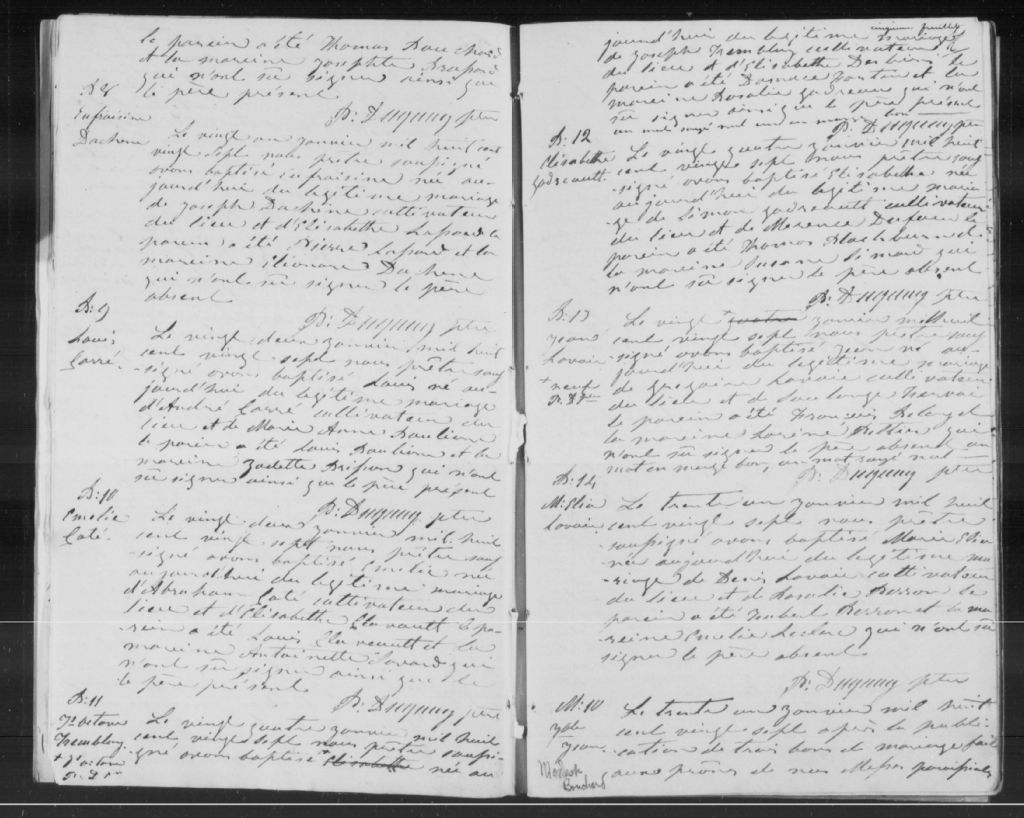 le parein a été Thomas Bouchard
et la mareine Josephte Brassard
qui n'ont sû signer ainsi que
le père présent
B: Duguay ptre
B: 8
Eufraisine
Duchene
Le vingt un janvier mil huit cent
vingt sept nous prêtre soussigné
avons baptisé Eufraisine née au-
jourd'hui du légitime mariage
de Joseph Duchêne cultivateur
du lieu et d'Elisabethe Lassard le
parein a été Pierre Lassard et la
mareine Eléonore Duchene
qui n'ont sû signer le père
absent
B: Duguay ptre
B: 9
Louis
Carré
Le vingt deux janvier mil huit
cent vingt sept nous prêtre sous
signé avons baptisé Louis né au-
jourd'hui du légitime mariage
d'André Carré cultivateur du
lieu et de Marie Anne
le parein a été Louis et la
mareine qui n'ont
sû signer ainsi que le père présent
B: Duguay ptre
B: 10
Emelie
Coté
Le vingt deux janvier mil huit
cent vingt sept nous prêtre sous
signé avons baptisé Emelie née
aujourd'hui du légitime mariage
d'Abraham Coté cultivateur du
lieu et d'Elisabethe le pa-
rein a été Louis et la
mareine Antoinette qui
n'ont sû signer ainsi que
le père présent
B: Duguay ptre
B: 11
Octave
Tremblay
Le vingt quatre janvier mil huit
cent vingt sept nous prêtre soussi-
gné avons baptisé Elisabethe né au
cinquieme feuillet
jourd'hui du légitime mariage
de Joseph Tremblay cultivateur
du lieu et d'Elisabethe le
parein a été et la
mareine Rosalie qui n'ont
sû signer ainsi que le père présent
un mot rayé nul un en marge bon
B: Duguay ptre
B: 12
Elisabethe
Godreault
Le vingt quatre janvier mil huit
cent vingt sept nous prêtre sous
signé avons baptisé Elisabethe née
aujourd'hui du légitime maria-
ge de Simon Godreault cultivateur
du lieu et de Marence Dufour le
parein a été Thomas Blackburn et
la mareine Susane Simard qui
n'ont sû signer le père absent
B: Duguay ptre
B: 13
Jean
Lavoie
+ neuf
Le vingt quatre janvier mil huit
cent vingt sept nous prêtre sous
signé avons baptisé Jean né au-
jourd'hui du légitime mariage
de Gregoire Lavoie cultivateur
du lieu et de
le parein a été François
la mareine qui
n'ont sû signer le père absent un
mot en marge bon, un mot rayé nul
B: Duguay ptre
B: 14
M: Elia
Lavoie
Le trente un janvier mil huit
cent vingt sept nous prêtre
soussigné avons baptisé Marie Elia
née aujourd'hui du légitime ma-
riage de Denis Lavoie cultivateur
du lieu et de Rosalie le
parein a été et la ma-
reine Emelie Leclerc qui n'ont sû
signer le père absent
B: Duguay ptre
M: 10
Jean
Modeste
Bouchard
Le trente un janvier mil huit
cent vingt sept après la publi-
cation de trois bans de mariage fait
aux prônes de nos Messes paroissiales